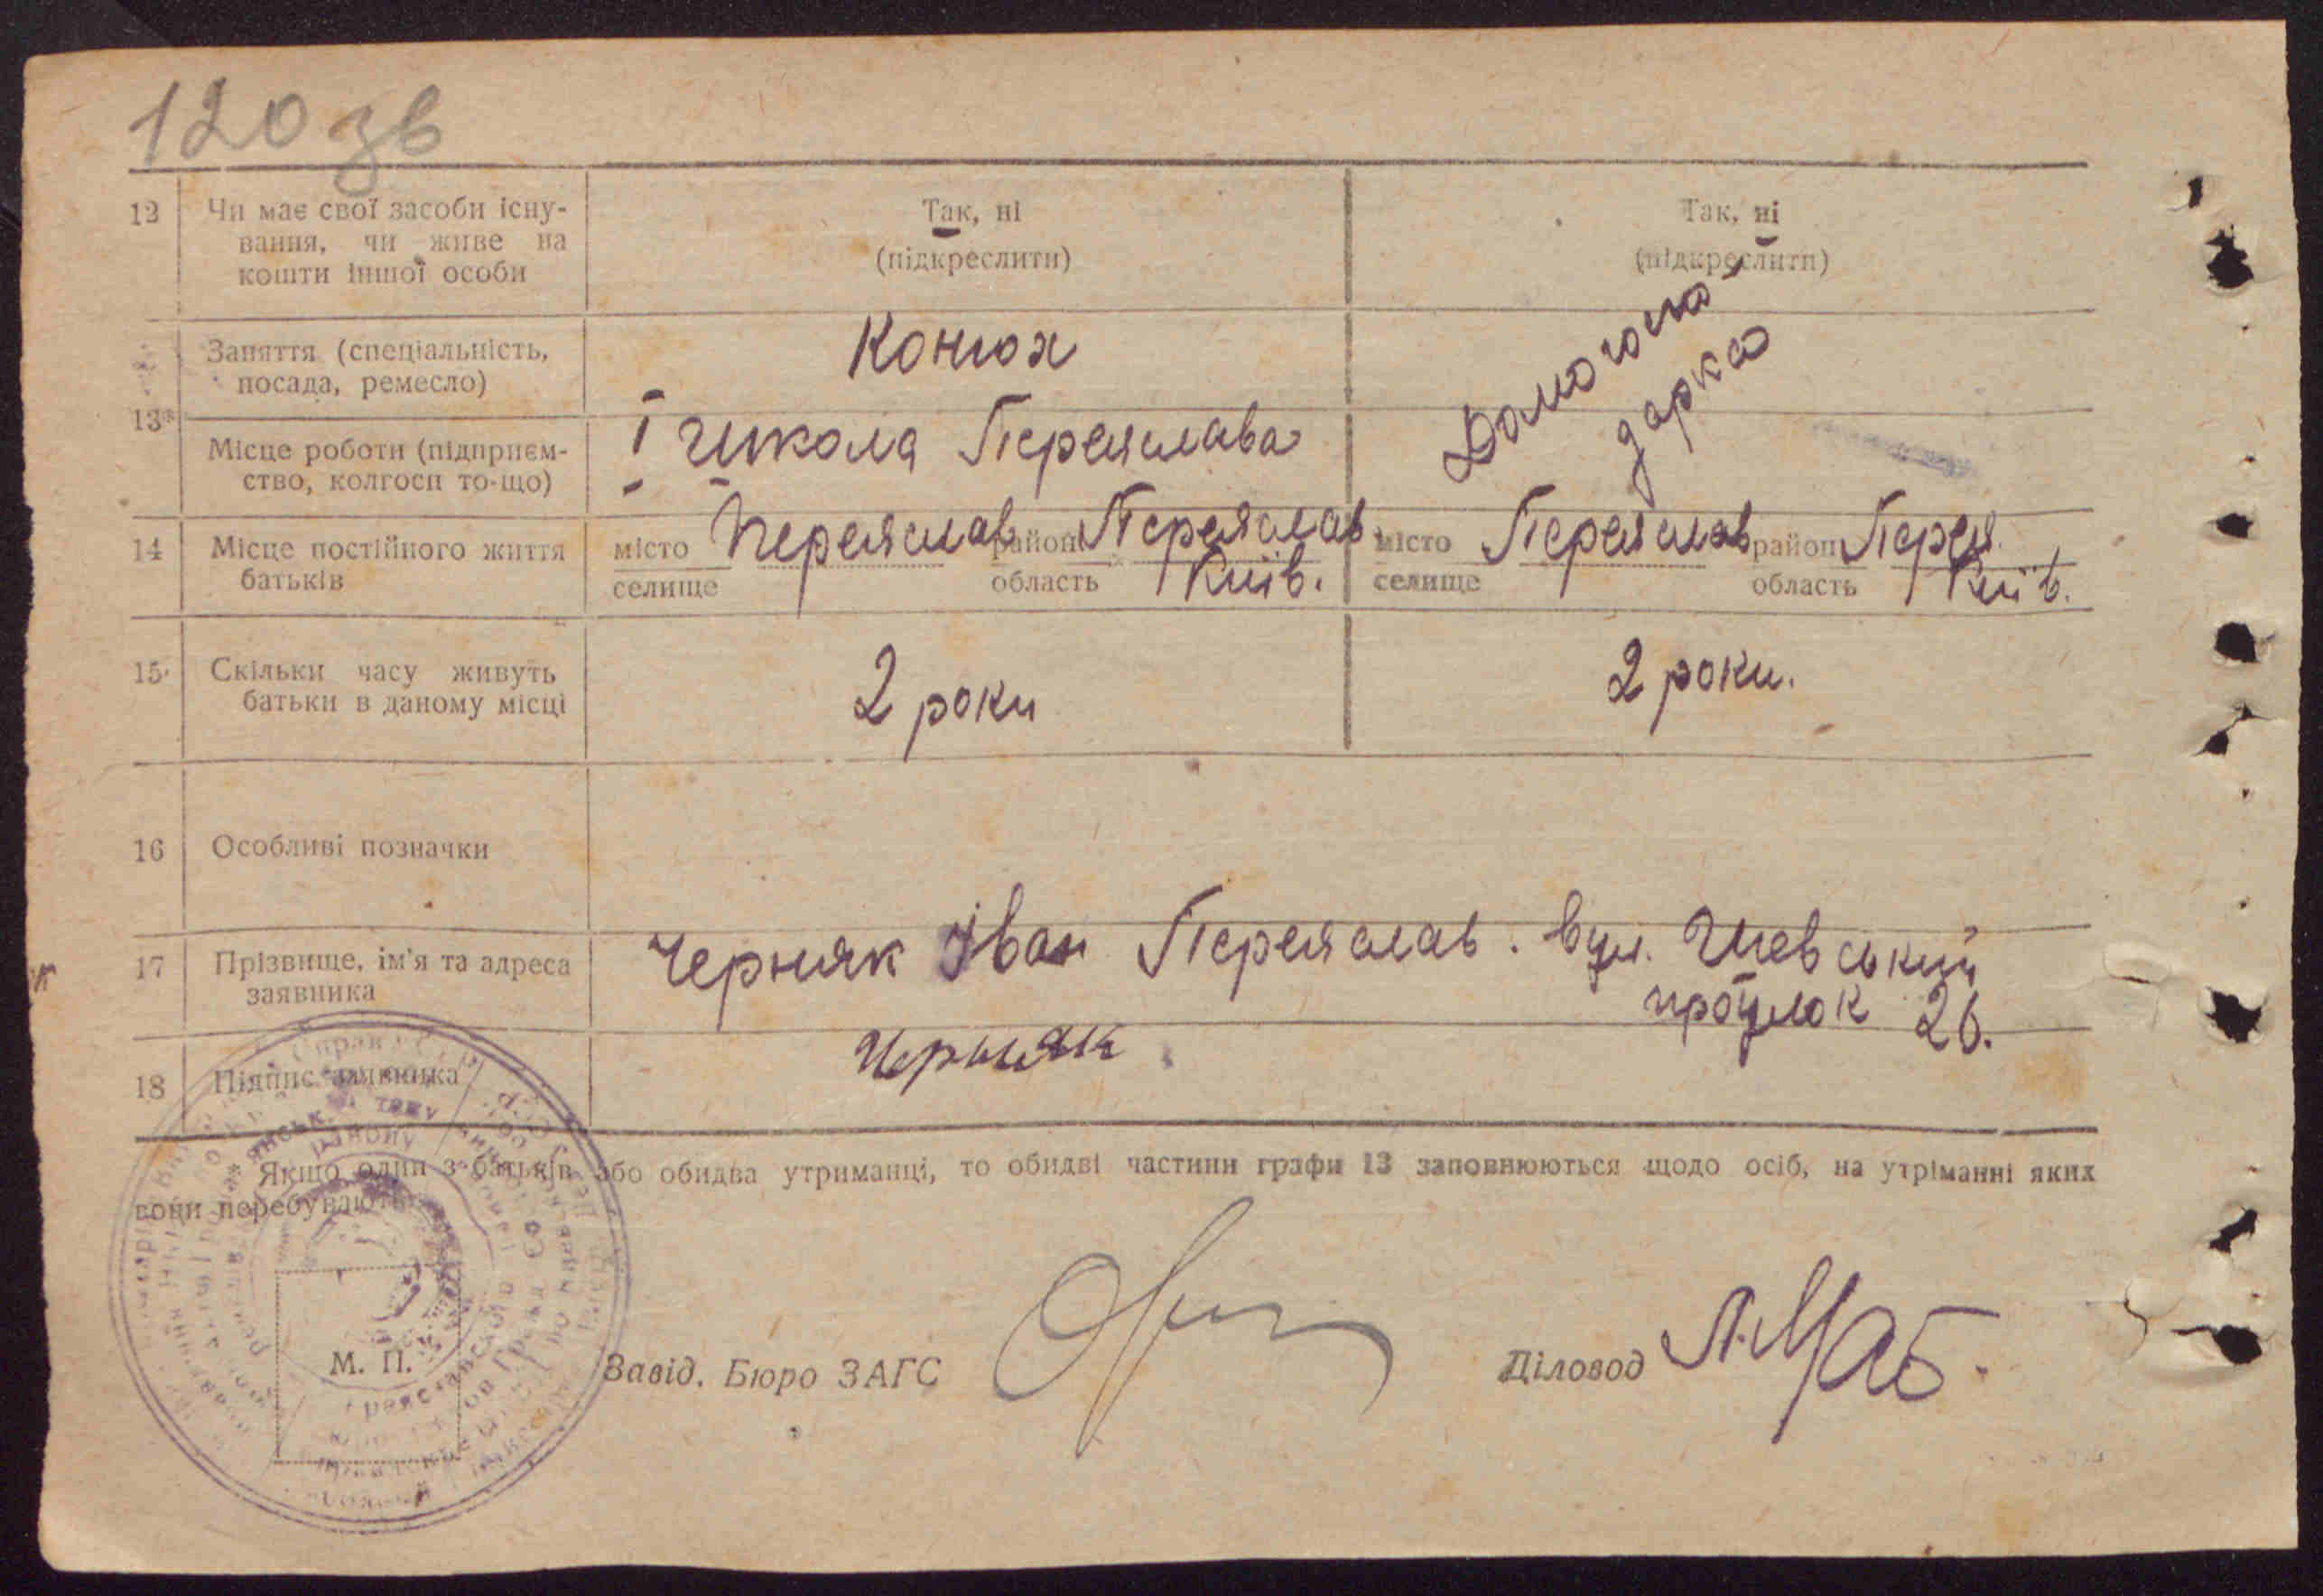 120 зв
12 Чи має свої засоби існу-
вання, чи живе на
кошти іншої особи
Так, ні
(підкреслити)
Так, ні
(підкреслити)
13*
Заняття (спеціальність,
посада, ремесло)
Конюх
Домогоспо-
дарка
Місце роботи (підприєм-
ство, колгосп то-що)
І школа Переяслава
14 Місце постійного життя
батьків
місто Переяслав район Переяслав
селище область Київ.
місто Переяслав район Перея.
селище область Київ.
15 Скільки часу живуть
батьки в даному місці
2 роки
2 роки.
16 Особливі позначки
17 Прізвище, ім'я та адреса
заявника
Черняк Іван Переяслав. вул. Шевський
проулок 26.
18 Підпис заявника
Черняк
* Якщо один з батьків або обидва утриманці, то обидві частини графи 13 заповнюються щодо осіб, на утріманні яких
вони перебувають.
М. П.
Завід. Бюро ЗАГС
Діловод